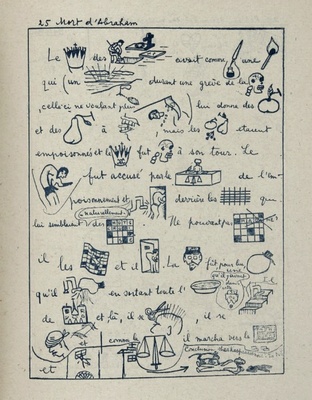 25 Mort d'Abraham
Le des avait comme une
qui (un durant une grève de la
, celle ci ne voulant plus lui donne des
et des à , mais les etaient
empoisonnés et la fut à son tour. Le
fut accusé par la de l'em-
poisonnement et derrière les que
naturellement
lui semblaient des . Ne pouvant pas
il les et il . La fût pour lui
une
qu'il en sortant toute l' il
de et, là, il a , il se
comme le il marcha vers le
et